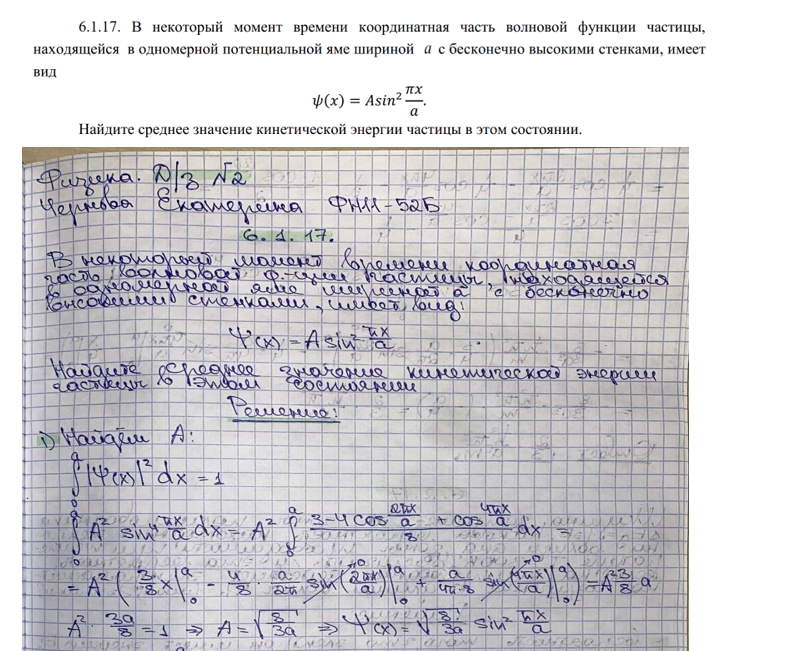 6.1.17. В некоторый момент времени координатная часть волновой функции частицы,
находящейся в одномерной потенциальной яме шириной a с бесконечно высокими стенками, имеет
вид
ψ(x) = Asin² πx/a.
Найдите среднее значение кинетической энергии частицы в этом состоянии.
Физика. Д/з №2
Чернова Екатерина ФН11-52Б
6.1.17.
В некоторый момент времени координатная
часть волновой ф-ции частицы, находящейся
в одномерной яме шириной a с бесконечно
высокими стенками, имеет вид:
Ψ(x) = A sin² πx/a
Найдите среднее значение кинетической энергии
частицы в этом состоянии
Решение:
1) Найдём A:
∫₀ᵃ |Ψ(x)|² dx = 1
∫₀ᵃ A² sin⁴ πx/a dx = A² ∫₀ᵃ (3-4 cos 2πx/a + cos 4πx/a)/8 dx =
= A² (3/8 x|₀ᵃ - 4/8 · a/2π sin(2πx/a)|₀ᵃ + a/4π·8 sin(4πx/a)|₀ᵃ) = A² 3/8 a
A² · 3a/8 = 1 ⇒ A = √(8/3a) ⇒ Ψ(x) = √(8/3a) sin² πx/a